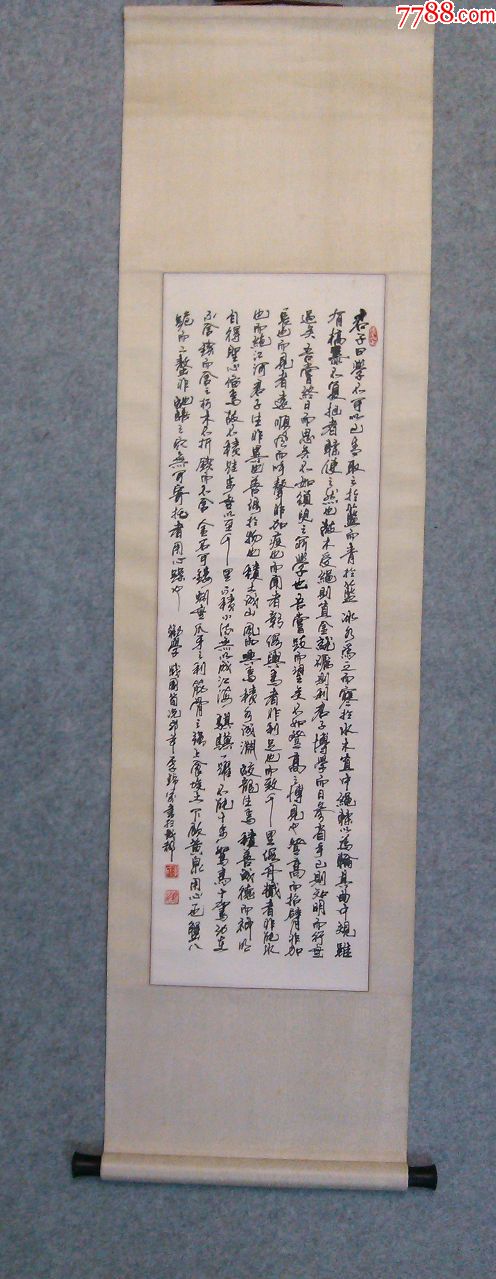 7788.com
君子曰學不可以已青取之於藍而青於藍冰水為之而寒於水木直中繩輮以為輪其曲中規雖
有槁暴不復挺者輮使之然也故木受繩則直金就礪則利君子博學而日參省乎己則知明而行無
過矣吾嘗終日而思矣不如須臾之所學也吾嘗跂而望矣不如登高之博見也登高而招臂非加
長也而見者遠順風而呼聲非加疾也而聞者彰假輿馬者非利足也而致千里假舟楫者非能水
也而絕江河君子生非異也善假於物也積土成山風雨興焉積水成淵蛟龍生焉積善成德而神明
自得聖心備焉故不積跬步無以至千里不積小流無以成江海騏驥一躍不能十步駑馬十駕功在
不舍鍥而舍之朽木不折鍥而不舍金石可鏤螾無爪牙之利筋骨之強上食埃土下飲黃泉用心一也蟹八
跪而二螯非蛇蟺之穴無可寄托者用心躁也 勸學 戰國荀況